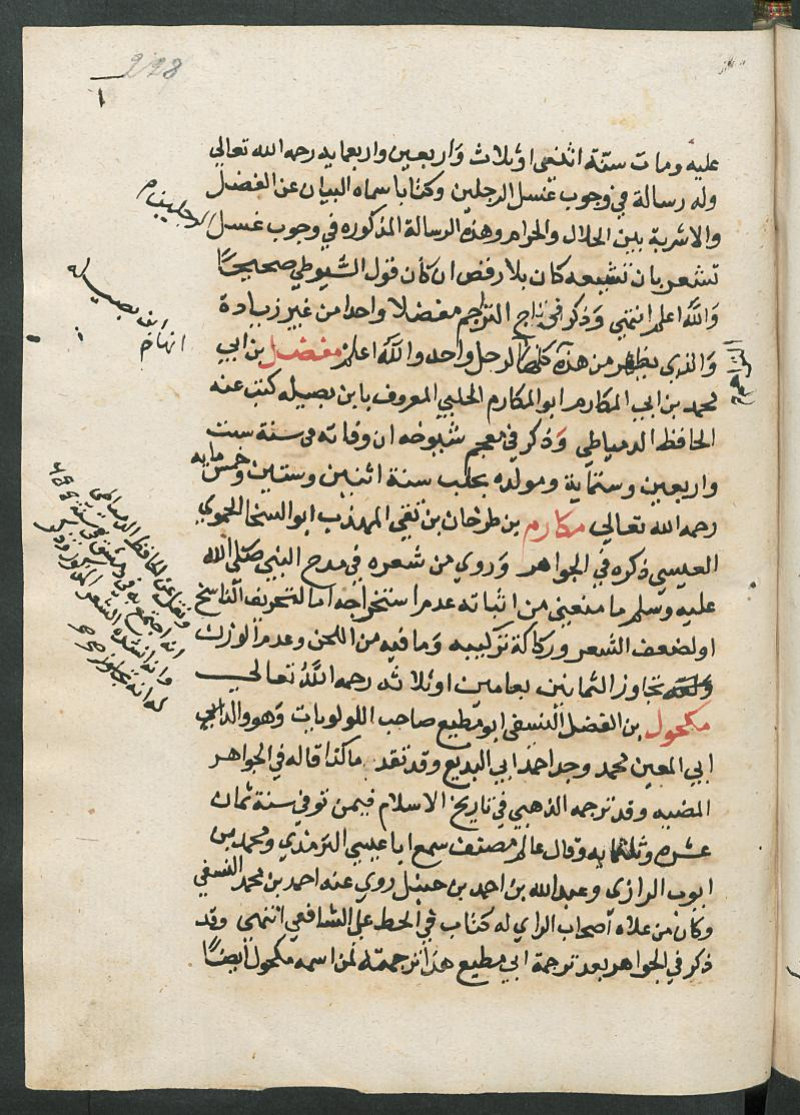 228
عليه ومات سنة اثنتي او ثلاث واربعين واربعمايه رحمه الله تعالى
وله رسالة في وجوب غسل الرجلين وكتابا سماه البيان عن الفصل
والاشربة بين الحلال والحرام وهذه الرسالة المذكوره في وجوب غسل
الرجلين
تشعر بان تشيعه كان بلا رفض ان كان قول السيوطي صحيحا
والله اعلم انتهى وذكر في تاج التراجم مفضلا واحدا من غير زيادة
والذي يظهر من هذه كلها الرجل واحد والله اعلم مفضل بن ابي
محمد بن ابي المكارم ابو المكارم الحلبي المعروف بابن بصيله كتب عنه
الحافظ الدمياطي وذكر في معجم شيوخه ان وفاته في سنة ست
واربعين وستماية ومولده بحلب سنة اثنين وستين وخمس مايه
رحمه الله تعالى مكارم بن طرخان بن تقي المهذب ابو السخا الحموي
العيسي ذكره في الجواهر وروي من شعره في مدح النبي صلى الله
عليه وسلم ما منعني من اثباته عدم استخراجه اما لتحريف الناسخ
او لضعف الشعر وركاكة تركيبه وما فيه من اللحن وعدم الوزن
تجاوز الثمانين بعامين او ثلاثه رحمه الله تعالى
مكحول بن الفضل النسفي ابو مطيع صاحب اللولويات وهو والد ابي
ابي المعين محمد وجد احمد ابي البديع وقد تقدما كذا قاله في الجواهر
المضيه وقد ترجمه الذهبي في تاريخ الاسلام فيمن توفي سنة ثمان
عشره وثلثمايه وقال عالم مصنف سمع ابا عيسي الترمذي ومحمد بن
ايوب الرازي وعبد الله بن احمد بن حنبل روي عنه احمد بن محمد النسفي
وكان من علاه اصحاب الراي له كتاب في الحط على الشافعي انتهى وقد
ذكر في الجواهر بعد ترجمة ابي مطيع هذا ترجمة لمن اسمه مكحول ايضا
ابن بصيله
التراجم
ونقل عن الحافظ الدمياطي
انه اجتمع به في دمشق في سنة
وانه انشده الشعر المذكور وذكر
له انه تجاوز